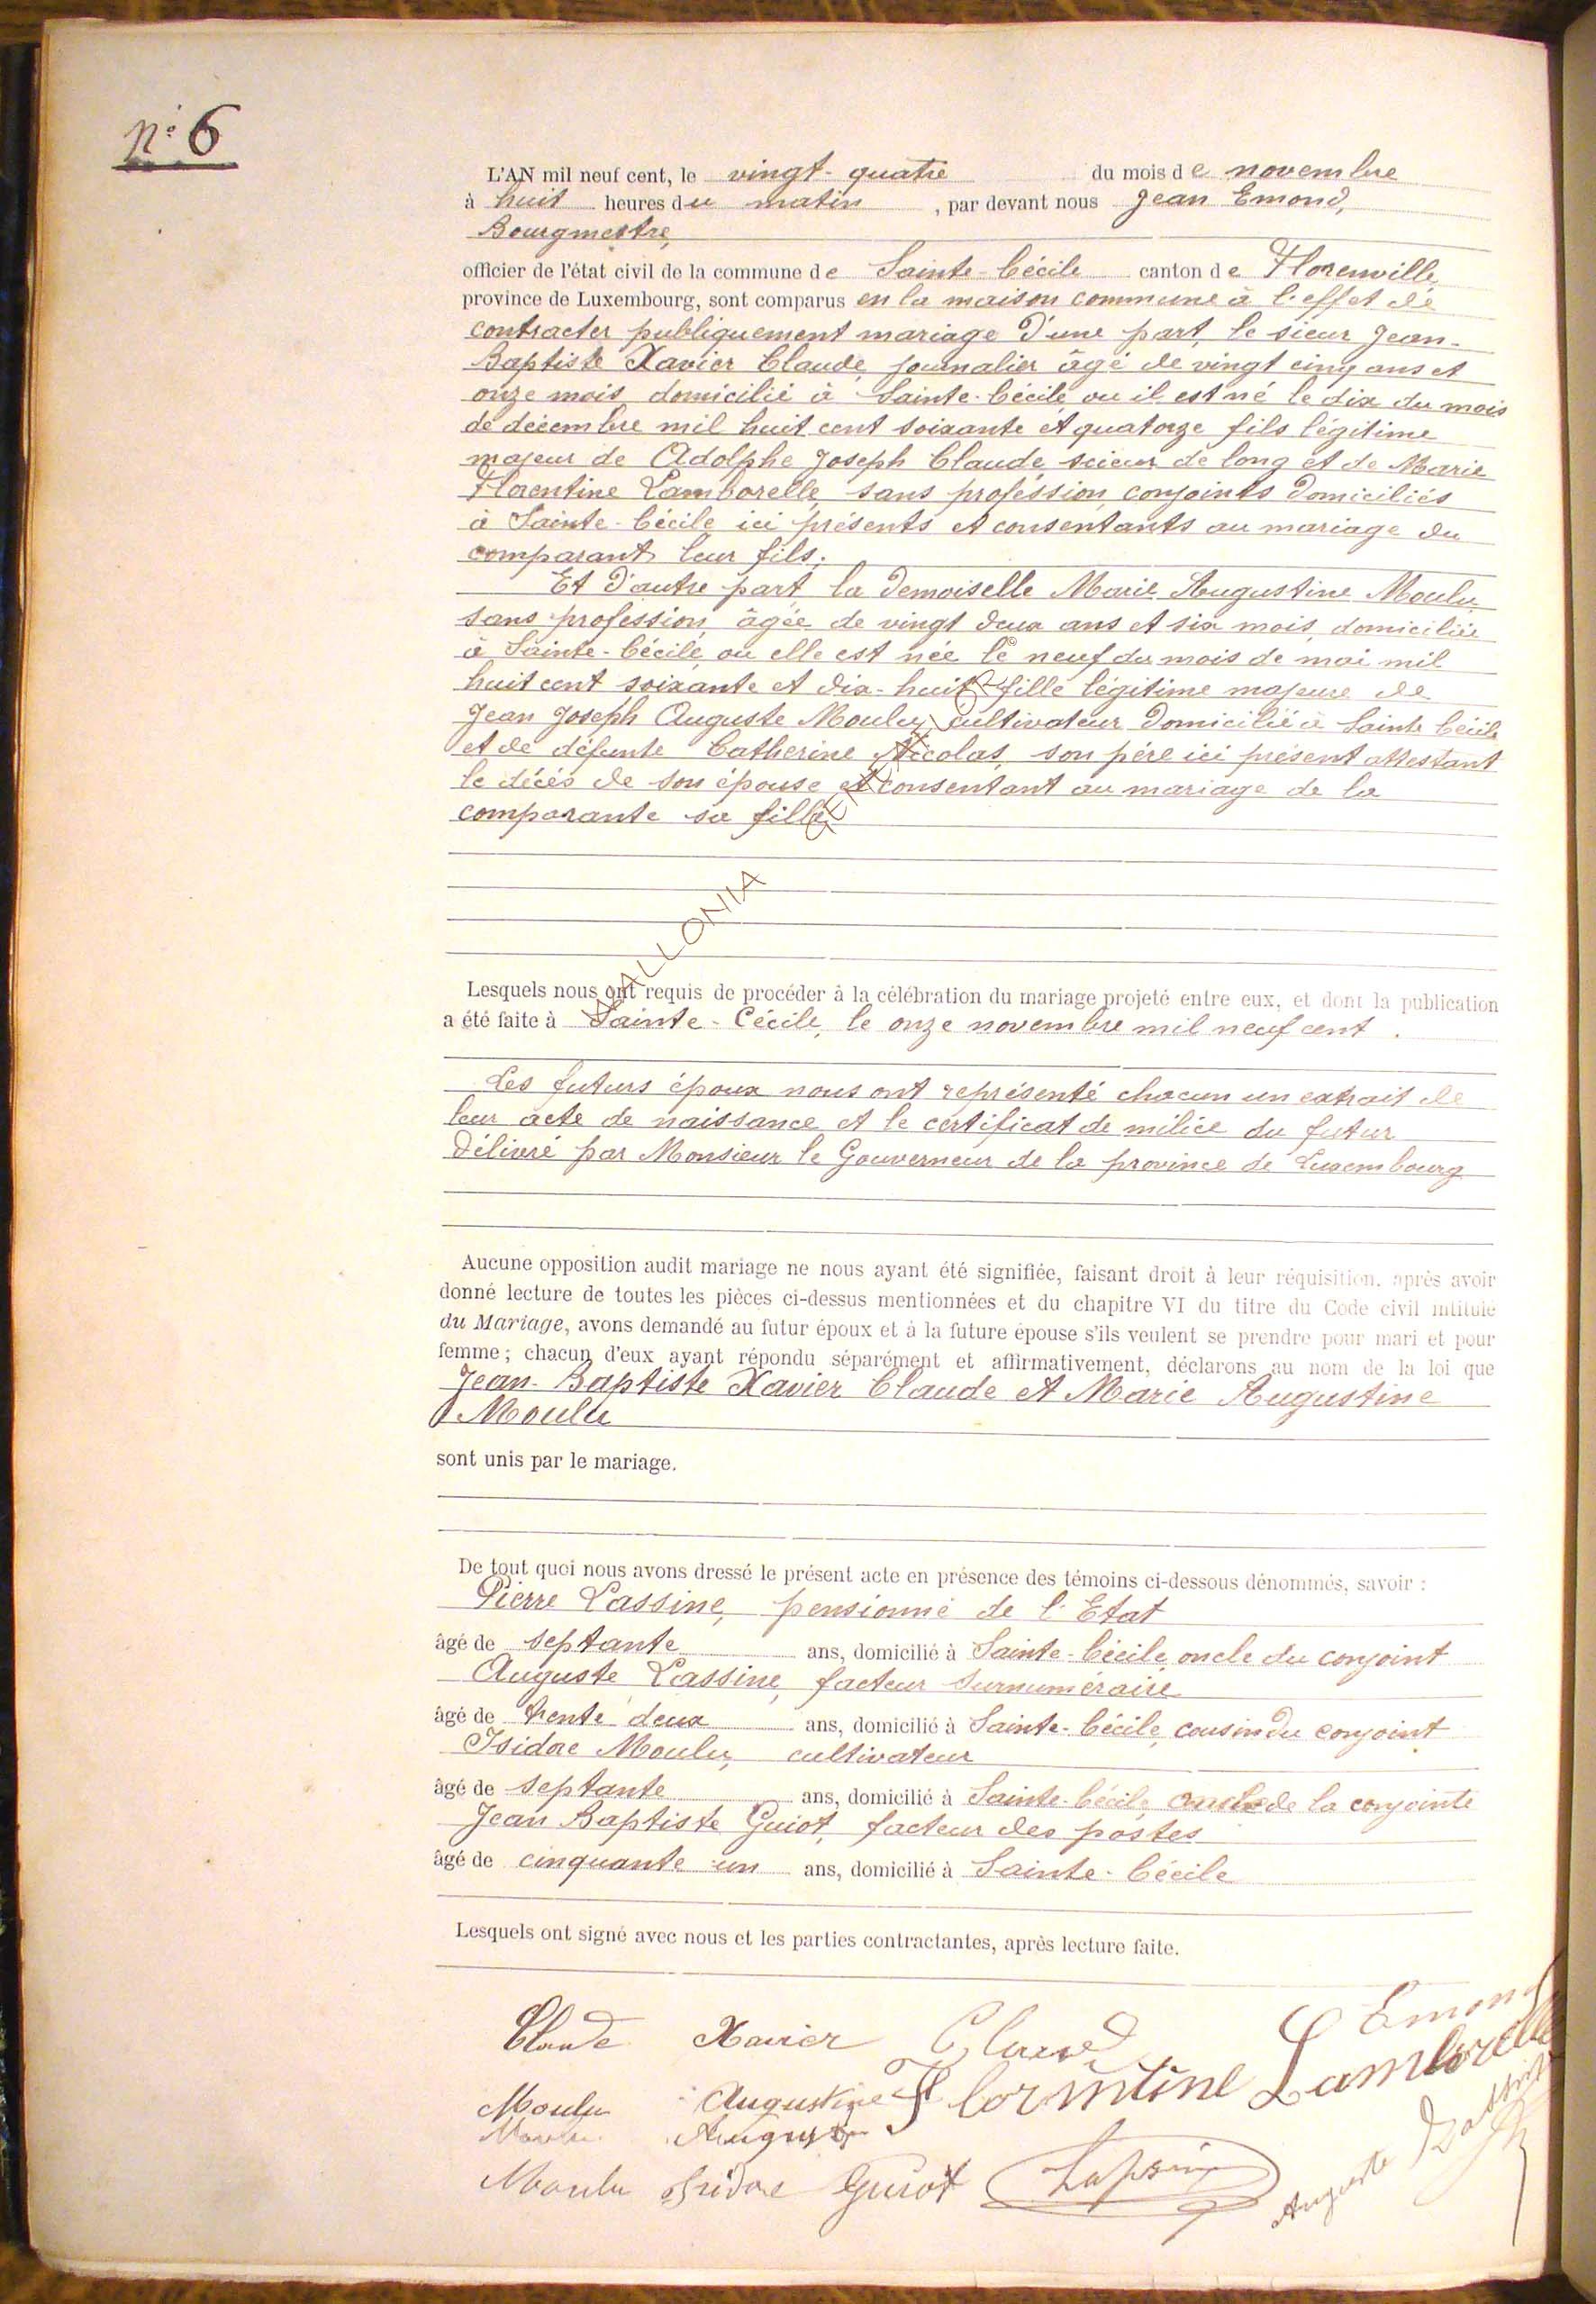 n° 6
L'AN mil neuf cent, le vingt-quatre du mois de novembre
à huit heures du matin, par devant nous Jean Emond,
Bourgmestre,
officier de l'état civil de la commune de Sainte-Cécile canton de Florenville,
province de Luxembourg, sont comparus en la maison commune à l'effet de
contracter publiquement mariage d'une part, le sieur Jean-
Baptiste Xavier Claude, journalier âgé de vingt cinq ans et
onze mois domicilié à Sainte-Cécile, ou il est né le dix du mois
de décembre mil huit cent soixante et quatorze fils légitime
majeur de Adolphe Joseph Claude, scieur de long et de Marie
Florentine Lamborelle, sans profession, conjoints domiciliés
à Sainte-Cécile ici présents et consentants au mariage du
comparant leur fils;
Et d'autre part la demoiselle Marie Augustine Moulu
sans profession, âgée de vingt deux ans et six mois, domiciliée
à Sainte-Cécile, ou elle est née le neuf du mois de mai mil
huit cent soixante et dix-huit fille légitime majeure de
Jean Joseph Auguste Moulu, cultivateur domicilié à Sainte Cécile
et de défunte Catherine Nicolas, son père ici présent attestant
le décès de son épouse et consentant au mariage de la
comparante sa fille
WALLONIA
Lesquels nous ont requis de procéder à la célébration du mariage projeté entre eux, et dont la publication
a été faite à Sainte-Cécile, le onze novembre mil neuf cent.
Les futurs époux nous ont représenté chacun un extrait de
leur acte de naissance et le certificat de milice du futur
délivré par Monsieur le Gouverneur de la province de Luxembourg
Aucune opposition audit mariage ne nous ayant été signifiée, faisant droit à leur réquisition, après avoir
donné lecture de toutes les pièces ci-dessus mentionnées et du chapitre VI du titre du Code civil intitulé
du Mariage, avons demandé au futur époux et à la future épouse s'ils veulent se prendre pour mari et pour
femme; chacun d'eux ayant répondu séparément et affirmativement, déclarons au nom de la loi que
Jean-Baptiste Xavier Claude et Marie Augustine
Moulu
sont unis par le mariage.
De tout quoi nous avons dressé le présent acte en présence des témoins ci-dessous dénommés, savoir :
Pierre Lassine, pensionné de l'Etat
âgé de septante ans, domicilié à Sainte-Cécile, oncle du conjoint
Auguste Lassine, facteur surnuméraire
âgé de trente deux ans, domicilié à Sainte-Cécile, cousin du conjoint
Isidore Moulu, cultivateur
âgé de septante ans, domicilié à Sainte-Cécile, oncle de la conjointe
Jean Baptiste Guiot, facteur des postes
âgé de cinquante-un ans, domicilié à Sainte-Cécile
Lesquels ont signé avec nous et les parties contractantes, après lecture faite.
Claude Xavier Claude Emond
Moulu Augustine Florintine Lamborelle
Moulu August
Moulu Isidore Guiot Lassine Auguste Lassine